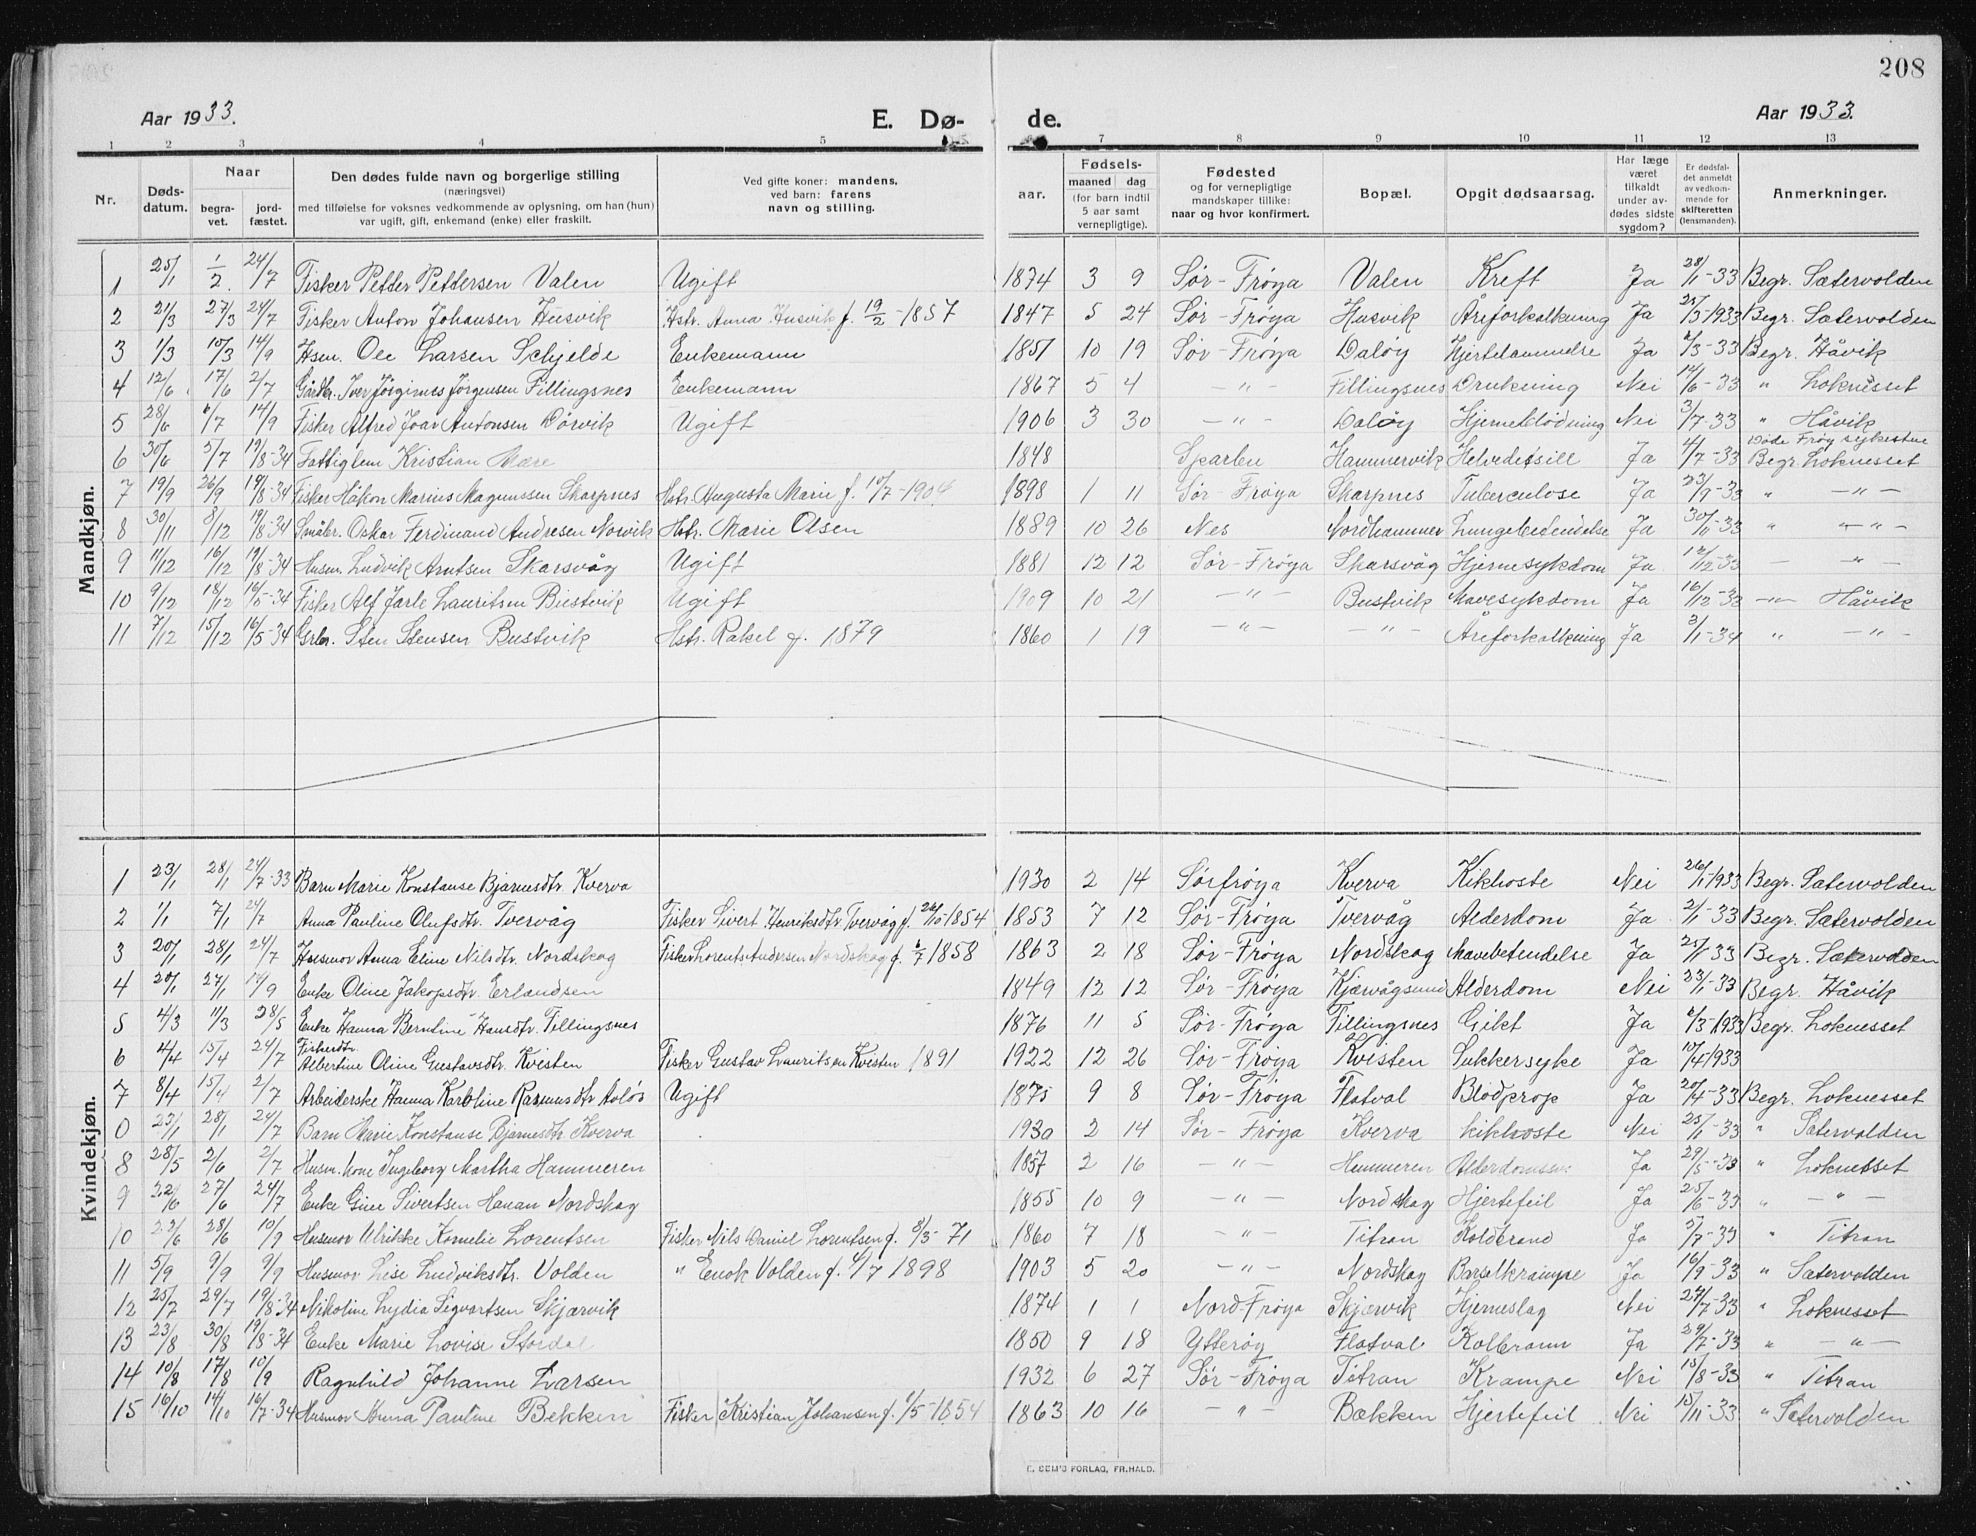 208
Aar 1933. E. Dø- de. Aar 1933.
1 2 3 4 5 7 8 9 10 11 12 13
Nr. Døds-datum. Naar begra-vet. jord-fæstet. Den dødes fulde navn og borgerlige stilling (næringsvei) med tilføielse for voksnes vedkommende av oplysning, om han (hun) var ugift, gift, enkemand (enke) eller fraskilt. Ved gifte koner: mandens, ved barn: farens navn og stilling. aar. Fødsels- maaned dag (for barn indtil 5 aar samt vernepligtige). Fødested og for vernepligtige mandskaper tillike: naar og hvor konfirmert. Bopæl. Opgit dødsaarsag. Har læge været tilkaldt under av-dødes sidste sygdom? Er dødsfal-det anmeldt av vedkom-mende for skifteretten (lensmanden). Anmerkninger.
Mandkjøn.
1 25/1 1/2 24/7 Fisker Petter Pettersen Valen Ugift 1874 3 9 Sør-Frøya Valen Kreft Ja 28/1-33 Begr. Sætervolden
2 21/3 27/3 24/7 Fisker Anton Johansen Husvik Hstr. Anna Husvik f. 19/2-1857 1847 5 24 Sør-Frøya Husvik Åreforkalkning Ja 25/3-1933 Begr. Sætervolden
3 1/3 10/3 14/9 Hsm. Ole Larsen Schjelde Enkemann 1851 10 19 Sør-Frøya Daløy Hjertelammelse Ja /3-33 Begr. Håvik
4 12/6 17/6 2/7 Gårdbr. Iver Jørgines Jørgensen Fillingsnes Enkemann 1867 5 4 -"- Fillingsnes Drukning Nei 14/6-33 " Loknesset
5 28/6 6/7 14/9 Fisker Alfred Joar Antonsen Dørvik Ugift 1906 3 30 -"- Daløy Hjerneblødning Nei 3/7-33 " Håvik
6 30/6 5/7 19/8-34 Fattiglem Kristian Mære 1848 Sparbu Hammervik Helvedesill Ja 4/7-33 Døde Frøy sykestue Begr. Loknesset
7 19/9 26/9 19/8-34 Fisker Håkon Marius Magnussen Skarpnes Hstr. Augusta Marie f. 10/7-1904 1898 1 11 Sør-Frøya Skarpnes Tuberculose Ja 23/9-33 " -"-
8 30/11 8/12 19/8-34 Småbr. Oskar Ferdinand Andresen Nesvik Hstr. Marie Olsen 1889 10 26 Nes Nordhammer Lungebetendelse Ja 30/11-33 " -"-
9 11/12 16/12 19/8-34 Husm. Ludvik Arntsen Skarsvåg Ugift 1881 12 12 Sør-Frøya Skarsvåg Hjernesykdom Ja 12/12-33 - -"-
10 9/12 18/12 16/5-34 Fisker Alf Jarle Lauritsen Bustvik Ugift 1909 10 21 -"- Bustvik Mavesykdom Ja 16/12-33 -"- Håvik
11 7/12 15/12 16/5-34 Grbr. Sten Stensen Bustvik Hstr. Rakel f. 1879 1860 1 19 -"- -"- Åreforkalkning Ja 3/1-34 " -"-
Kvindekjøn.
1 23/1 28/1 24/7-33 Barn Marie Konstanse Bjarnesdtr. Kverva 1930 2 14 Sørfrøya Kverva Kikhoste Nei 26/1-1933 Begr. Sætervolden
2 1/1 7/1 24/7 Anna Pauline Olufsdtr. Tvervåg Fisker Sivert Henriksdtr Tvervåg f. 26/10-1854 1853 7 12 Sør-Frøya Tvervåg Alderdom Ja 2/1-33 Begr. Sætervolden
3 20/1 28/1 24/7 Husmor Anna Eline Nilsdtr. Nordskag Fisker Lorents Andersen Nordskag f. 6/7 1858 1863 2 18 Sør-Frøya Nordskag Mavebetendelse Ja 25/1-33 Begr. Sætervolden
4 20/1 27/1 14/9 Enke Oline Jakopsdtr. Erlandsen 1849 12 12 Sør-Frøya Kjærvågsund Alderdom Nei 23/1-33 Begr. Håvik
5 4/3 11/3 28/5 Enke Hanna Berntine Hansdtr. Fillingsnes 1876 11 5 Sør-Frøya Fillingsnes Gikt Ja 6/3-1933 Begr. Loknesset
6 4/4 15/4 24/7 Fiskerdtr. Albertine Oline Gustavsdtr. Kvisten Fisker Gustav Lauritsen Kvisten 1891 1922 12 26 Sør-Frøya Kvisten Sukkersyke Ja 10/4 1933
7 8/4 15/4 2/7 Arbeiderske Hanna Karoline Rasmusdtr Ugift 1875 9 8 Sør-Frøya Flatval Blodprop Ja 20/4-33 Begr. Loknesset
0 23/1 28/1 24/7 Barn Marie Konstanse Bjarnesdtr Kverva 1930 2 14 Sør-Frøya Kverva kikhoste Nei 25/1-33 " Sætervolden
8 28/5 2/6 2/7 Husm. kone Ingeborg Martha Hammeren 1857 2 16 -"- Hammeren Ja 29/5-33 " Loknesset
9 22/6 27/6 24/7 Enke Gine Sivertsen Hanan Nordskag 1855 10 9 -"- Nordskag Hjertefeil Ja 25/6-33 " -"-
10 22/6 28/6 10/9 Husmor Ulrikke Kornelie Lorentsen Fisker Nils Daniel Lorentsen f. 8/3-71 1860 7 18 -"- Titran Koldbrand Ja 5/7-33 " Titran
11 5/9 9/9 9/9 Husmor Lise Ludviksdtr. Volden " Enok Volden f. 4/7 1898 1903 5 20 -"- Nordskag Barselkrampe Ja 16/9-33 " Sætervolden
12 25/7 29/7 19/8-34 Nikoline Lydia Sigvartsen Skjærvik 1874 1 1 Nord-Frøya Skjærvik Hjerneslag Nei 27/7-33 " Loknesset
13 23/8 30/8 19/8-34 Enke Marie Lovise Stordal 1850 9 18 Ytterøy Flatval Kolbrann Ja 29/7-33 " -"-
14 10/8 17/8 10/9 Ragnhild Johanne Larsen 1932 6 27 Sør-Frøya Titran Krampe Nei 15/8-33 " Titran
15 16/10 14/10 16/7-34 Husmor Anna Pauline Bekken Fisker Kristian Johansen f. 1/5-1854 1863 10 16 -"- Bækken Hjertefeil Nei 15/11-33 " Sætervolden
E. SEM'S FORLAG, FR.HALD.